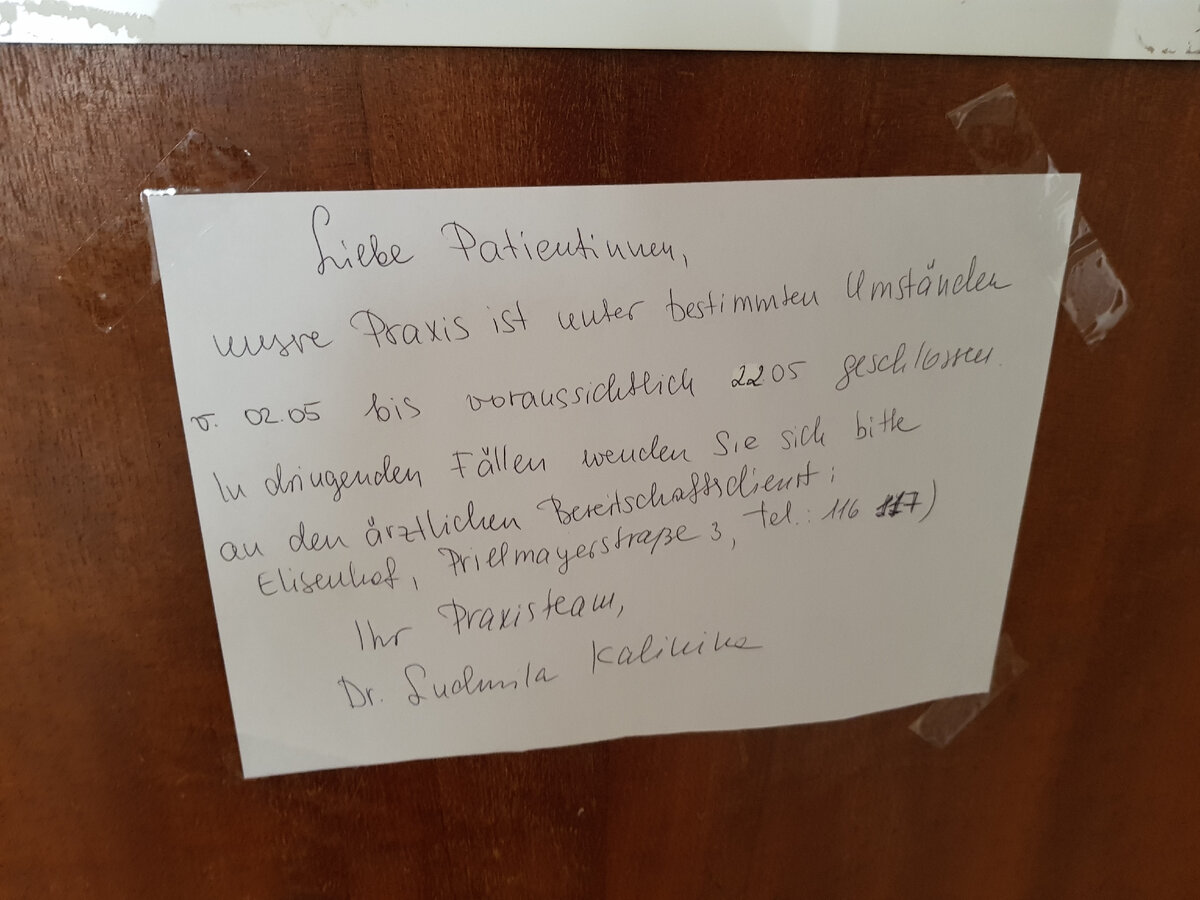 Liebe Patientinnen,
unsre Praxis ist unter bestimmten Umständen
v. 02.05 bis voraussichtlich 22 05 geschlossen.
In dringenden Fällen wenden Sie sich bitte
an den ärztlichen Bereitschaftsdienst:
Elisenhof, Prielmayerstraße 3, Tel.: 116 117)
Ihr Praxisteam,
Dr. Ludmila Kalinina